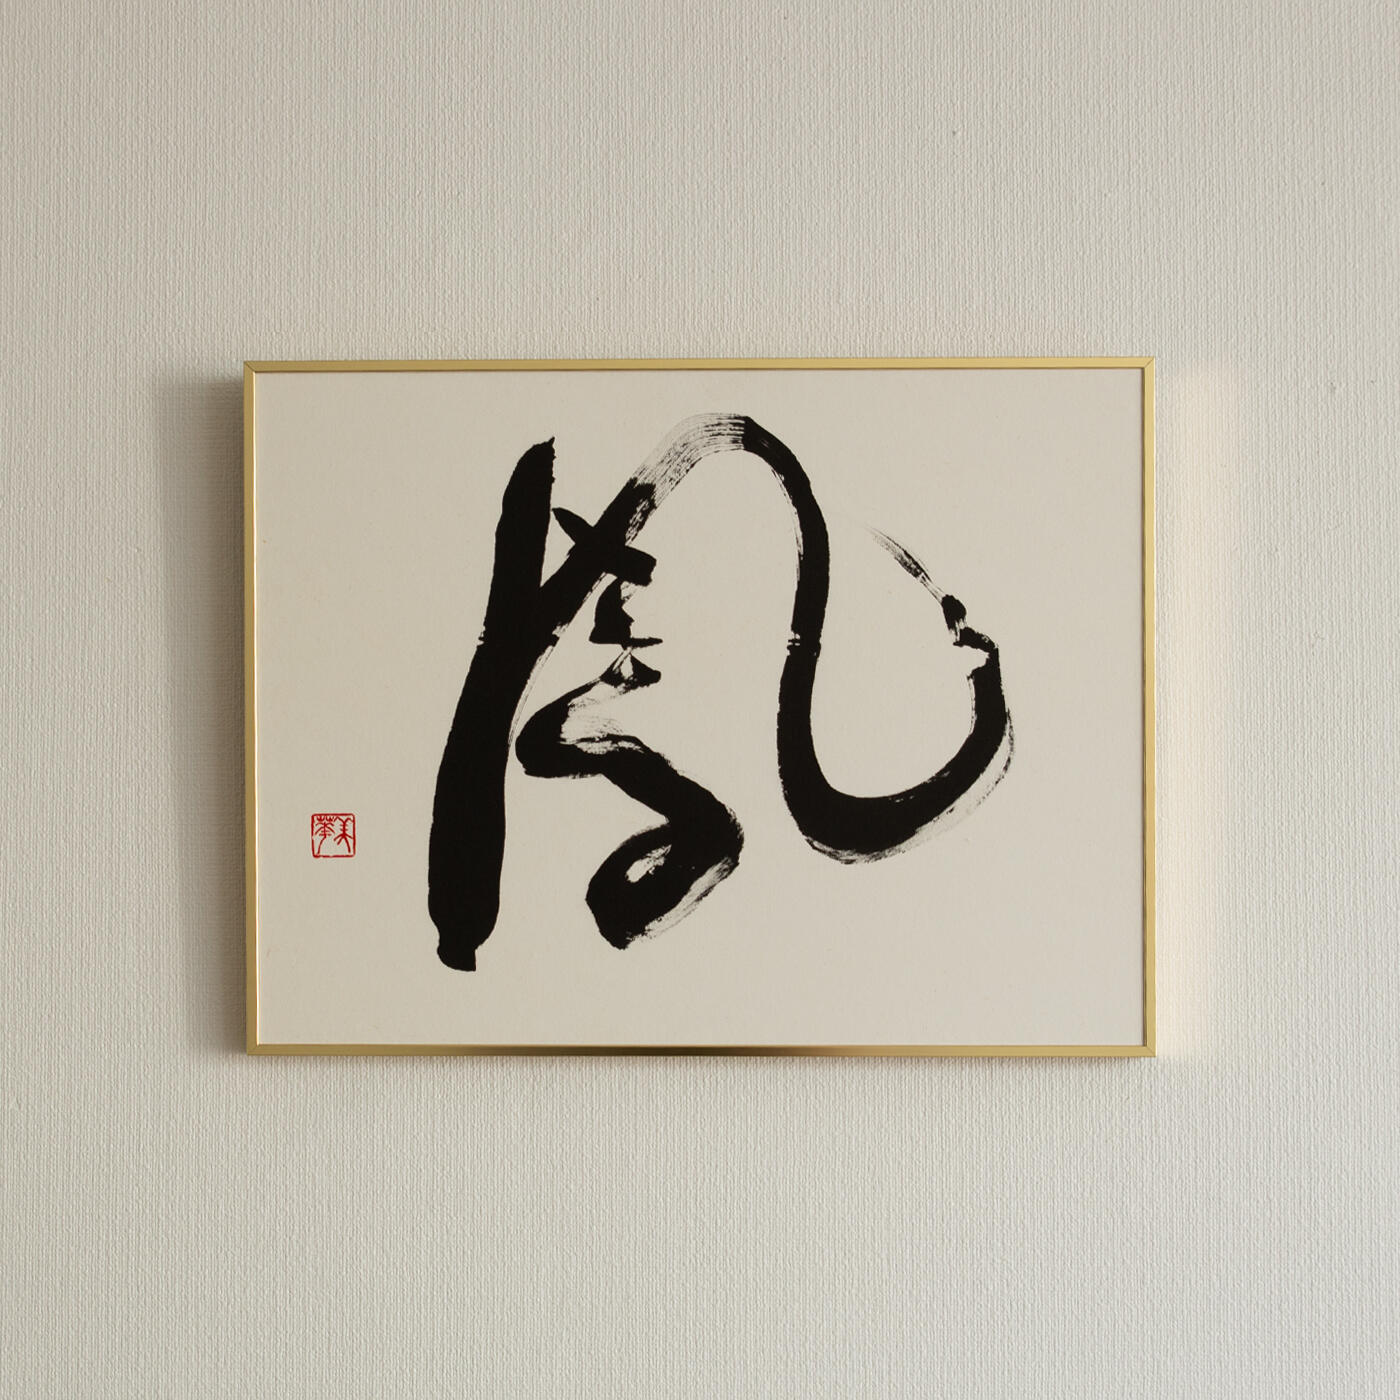 風
美華